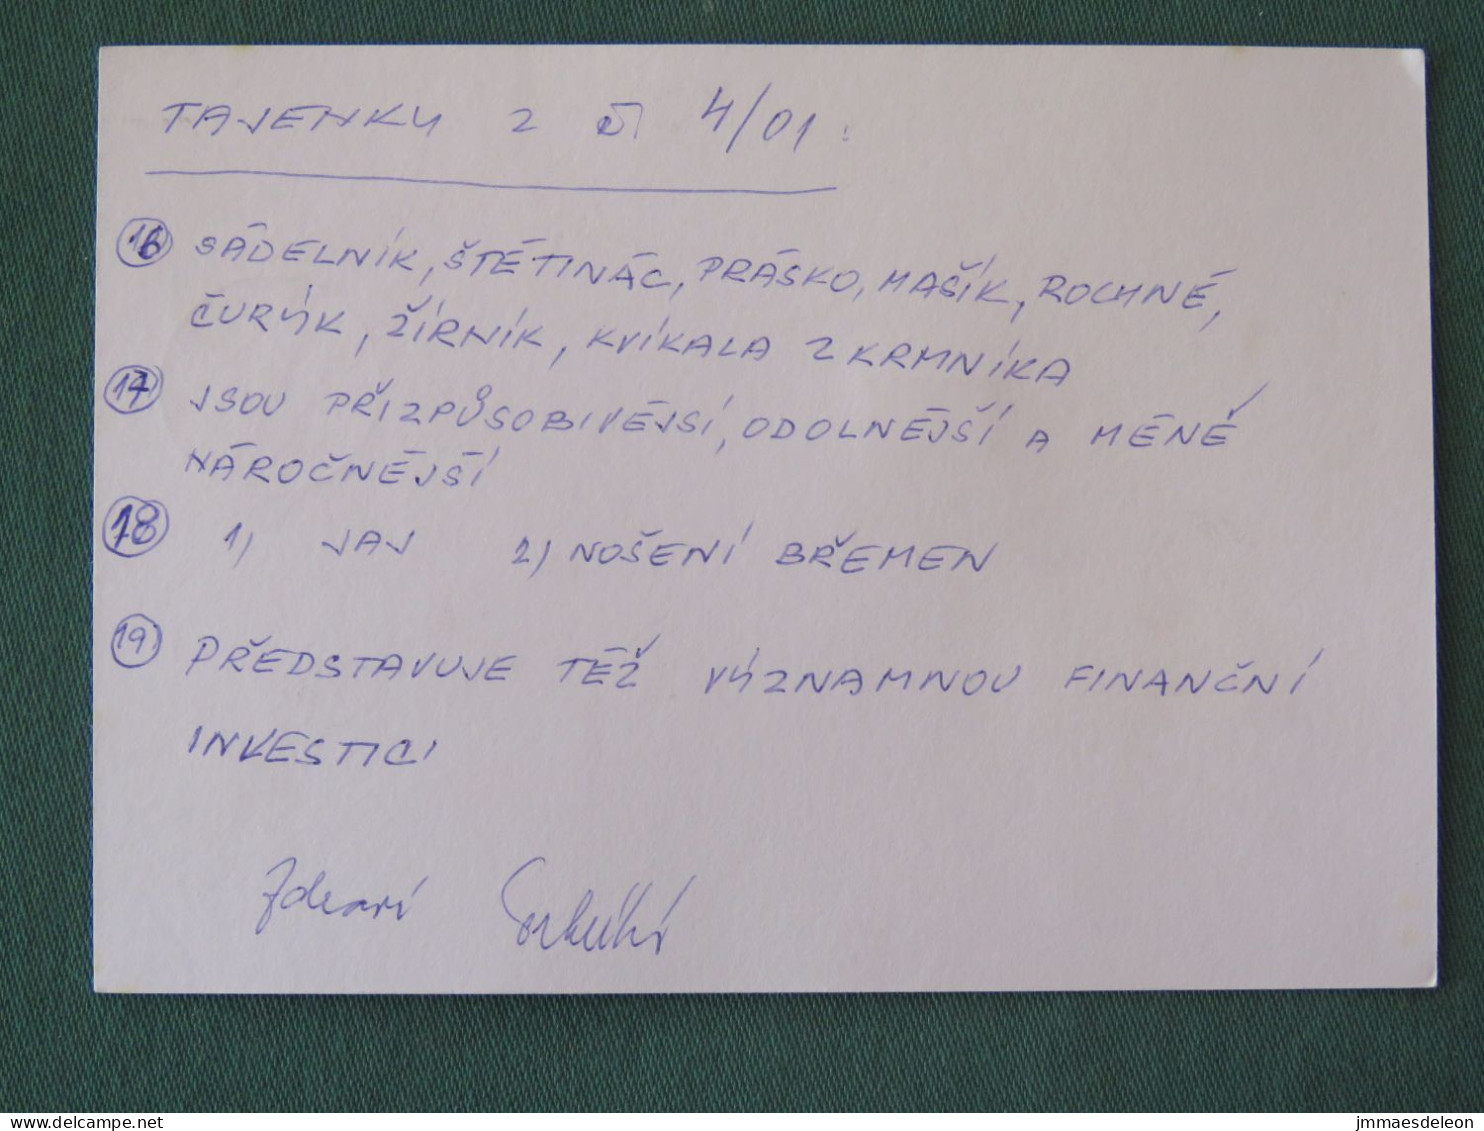 TAJENKY Z Č. 4/01:
16 SÁDELNÍK, ŠTĚTINÁČ, PRÁSKO, MAŠÍK, ROCHNĚ,
ČUNÍK, ŽÍRNÍK, KVÍKALA Z KRMNÍKA
17 JSOU PŘIZPŮSOBIVĚJŠÍ, ODOLNĚJŠÍ A MÉNĚ
NÁROČNĚJŠÍ
18 1) JAJ 2) NOŠENÍ BŘEMEN
19. PŘEDSTAVUJE TÉŽ VÝZNAMNOU FINANČNÍ
INVESTICI
Zdraví
jmmaesdeleon
www.delcampe.net